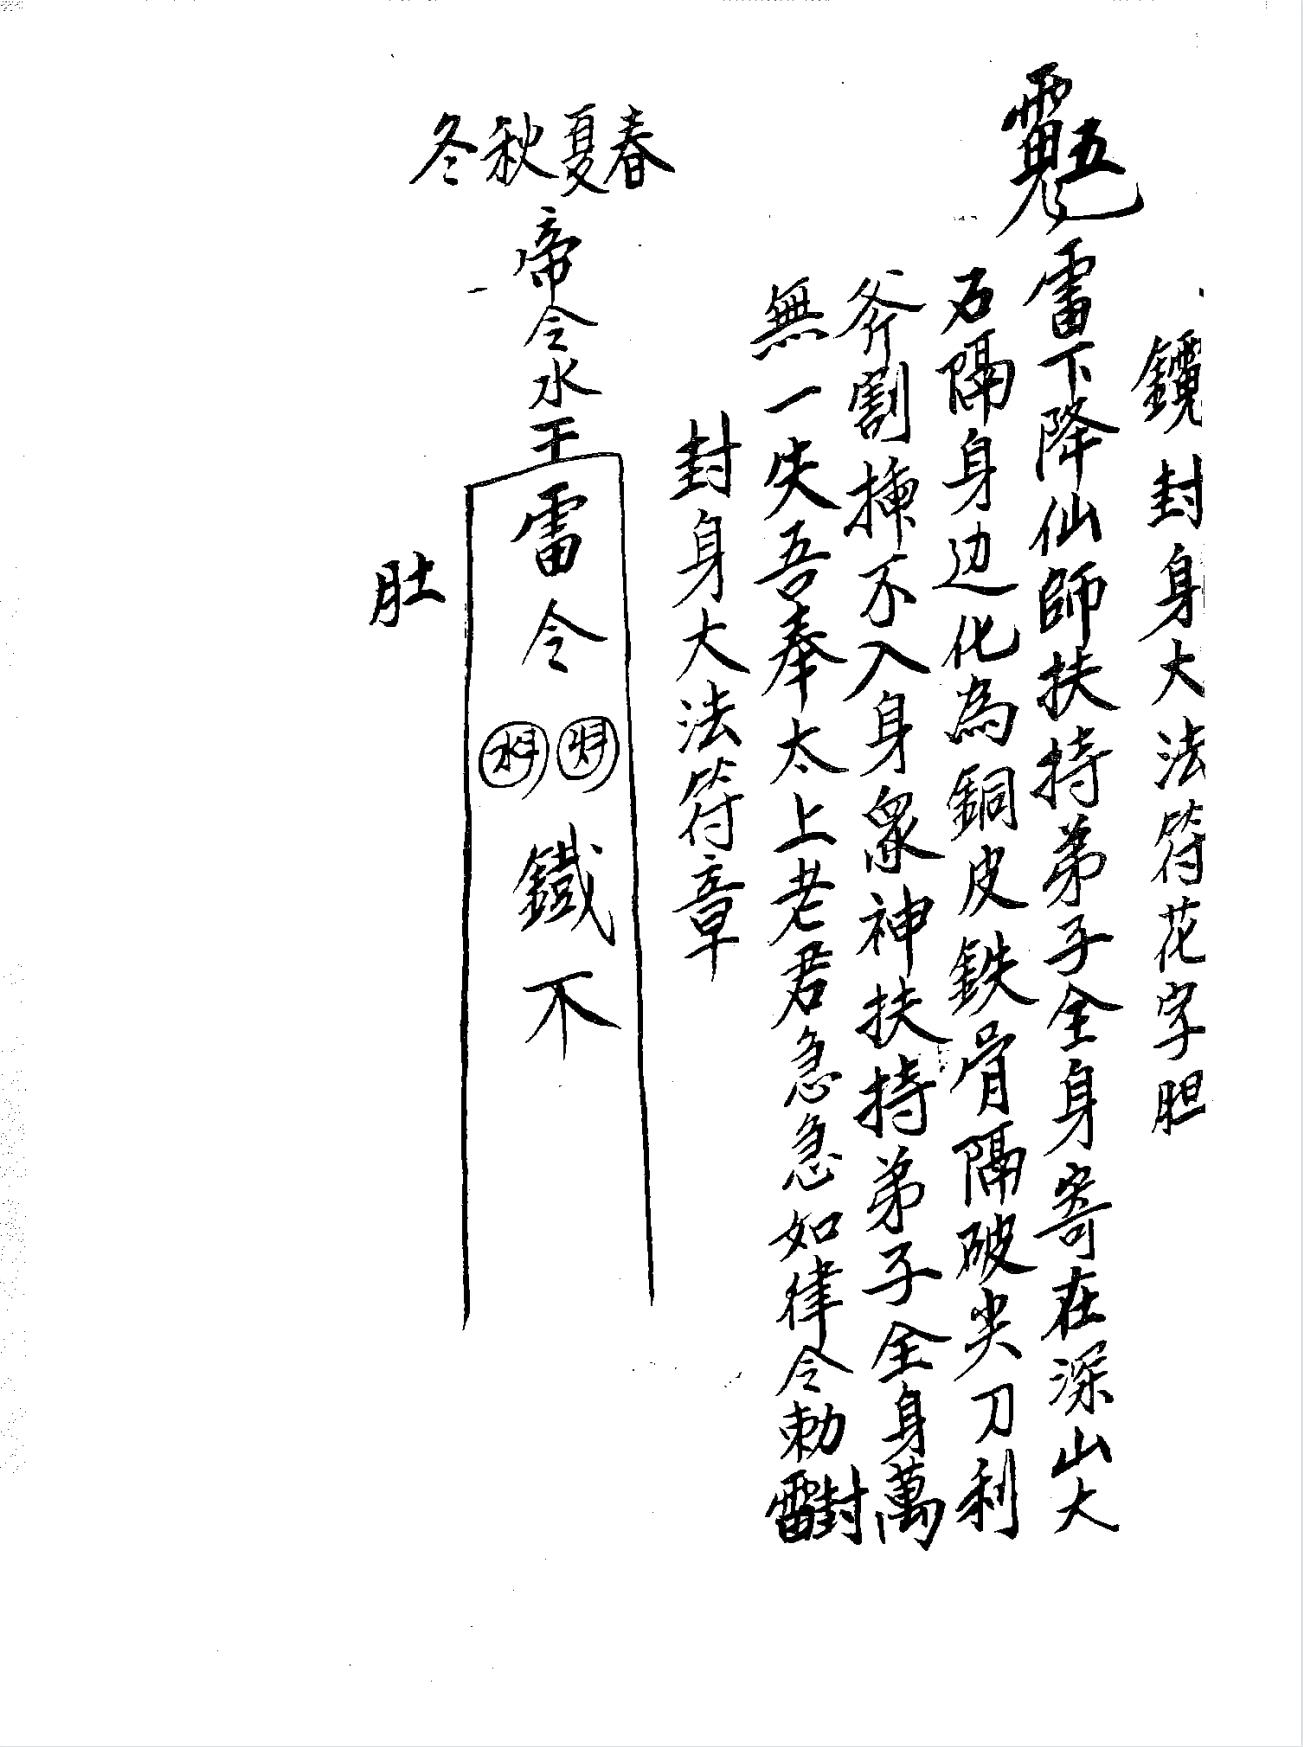 封身大法符花字胆
雷下降仙師扶持弟子全身寄在深山大
石隔身边化為銅皮鉄骨隔破尖刀利
斧割揀不入身眾神扶持弟子全身萬
無一失吾奉太上老君急急如律令勅
封身大法符章
春夏秋冬
帝令水王
雷令
鐵不
肚